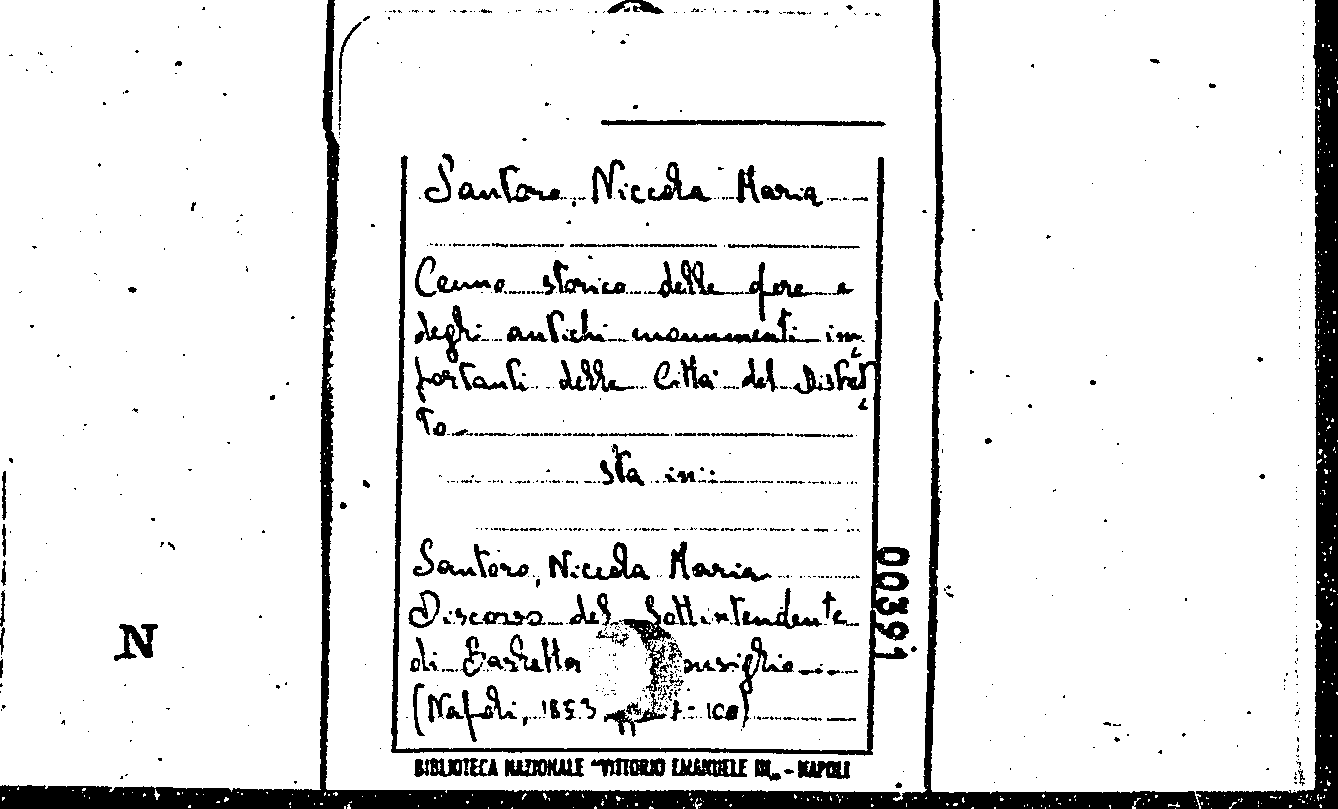 Santoro, Niccola Maria
Cenno storico delle opere e
degli antichi monumenti im
portanti delle Città del Distret
to
sta in:
Santoro, Niccola Maria
Discorso del Sottintendente
di Barletta
(Napoli, 1853,
BIBLIOTECA NAZIONALE "VITTORIO EMANUELE III" - NAPOLI
00391
N